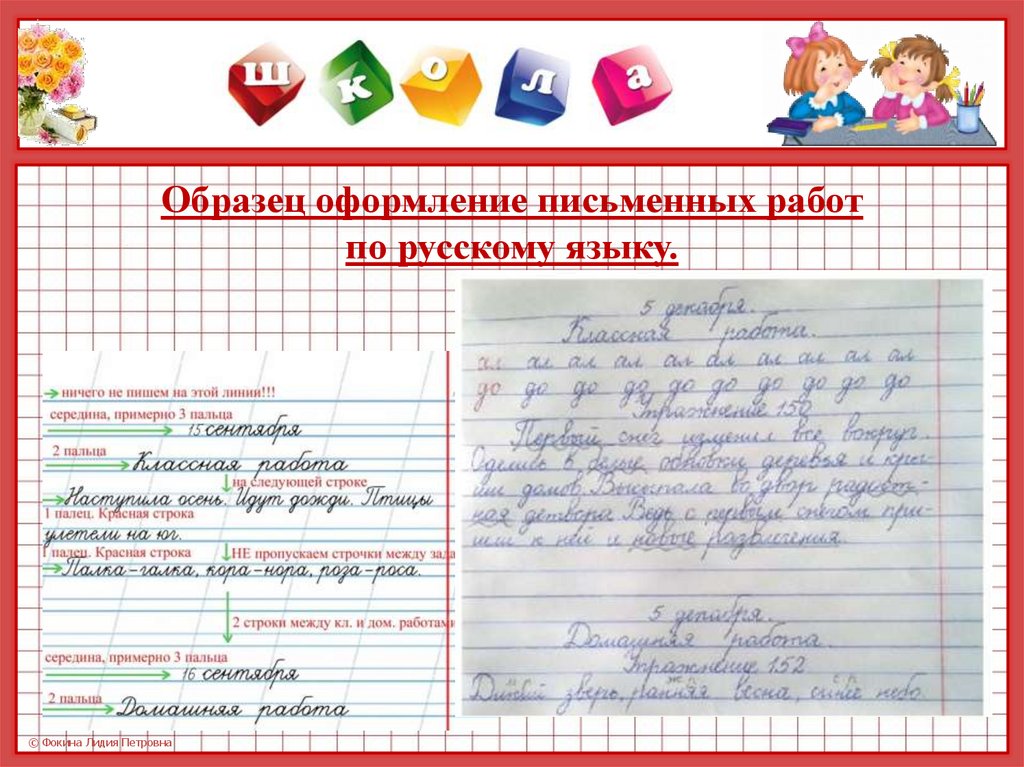 школа
Образец оформление письменных работ
по русскому языку.
ничего не пишем на этой линии!!!
середина, примерно 3 пальца
15 сентября
2 пальца
Классная работа
на следующей строке
Наступила осень. Идут дожди. Птицы
1 палец. Красная строка
улетели на юг.
1 палец. Красная строка
НЕ пропускаем строчки между зада
Палка-галка, кора-нора, роза-роса.
2 строки между кл. и дом. работами
середина, примерно 3 пальца
16 сентября
2 пальца
Домашняя работа
5 декабря.
Классная работа.
ал ал ал ал ал ал ал ал ал ал
до до до до до до до до до до
Упражнение 150
Первый снег изменил все вокруг.
Оделись в белые обновки деревья и кры-
ши домов. Высыпала во двор радост-
ная детвора. Ведь с первым снегом при-
шли к ней и новые развлечения.
5 декабря.
Домашняя работа.
Упражнение 152
Дикий зверь, ранняя весна, синее небо
© Фокина Лидия Петровна